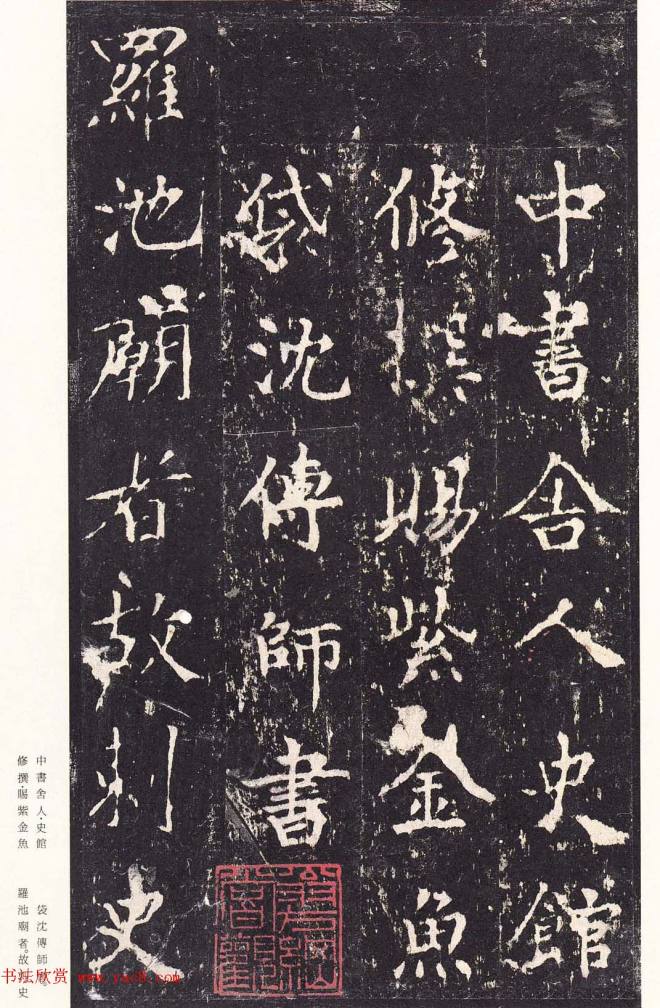 中書舍人史館
修撰賜紫金魚
袋沈傳師書
羅池廟者故刺史
中書舍人·史館
修撰·賜紫金魚
袋沈傳師
羅池廟者。故刺史
书法欣赏 www.yac8.com